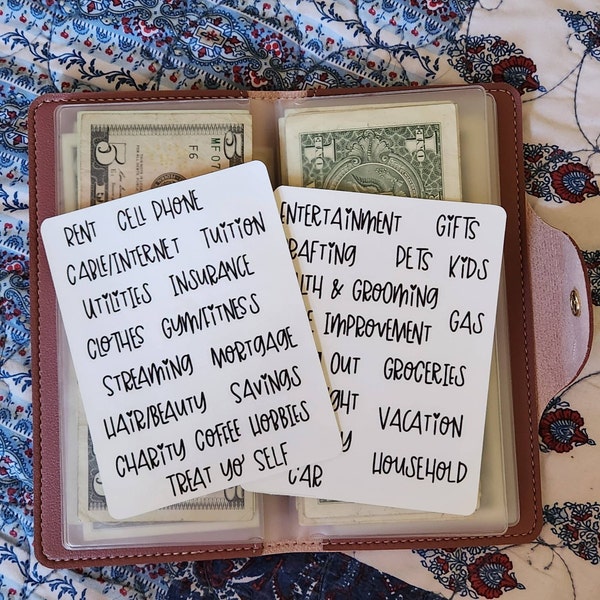 RENT CELL PHONE
CABLE/INTERNET TUITION
UTILITIES INSURANCE
CLOTHES GYM/FITNESS
STREAMING MORTGAGE
HAIR/BEAUTY SAVINGS
CHARITY COFFEE HOBBIES
TREAT YO' SELF
ENTERTAINMENT GIFTS
RAFTING PETS KIDS
LTH & GROOMING
IMPROVEMENT GAS
OUT GROCERIES
GHT VACATION
Y HOUSEHOLD
CAR
5
F6
MF07
ONE